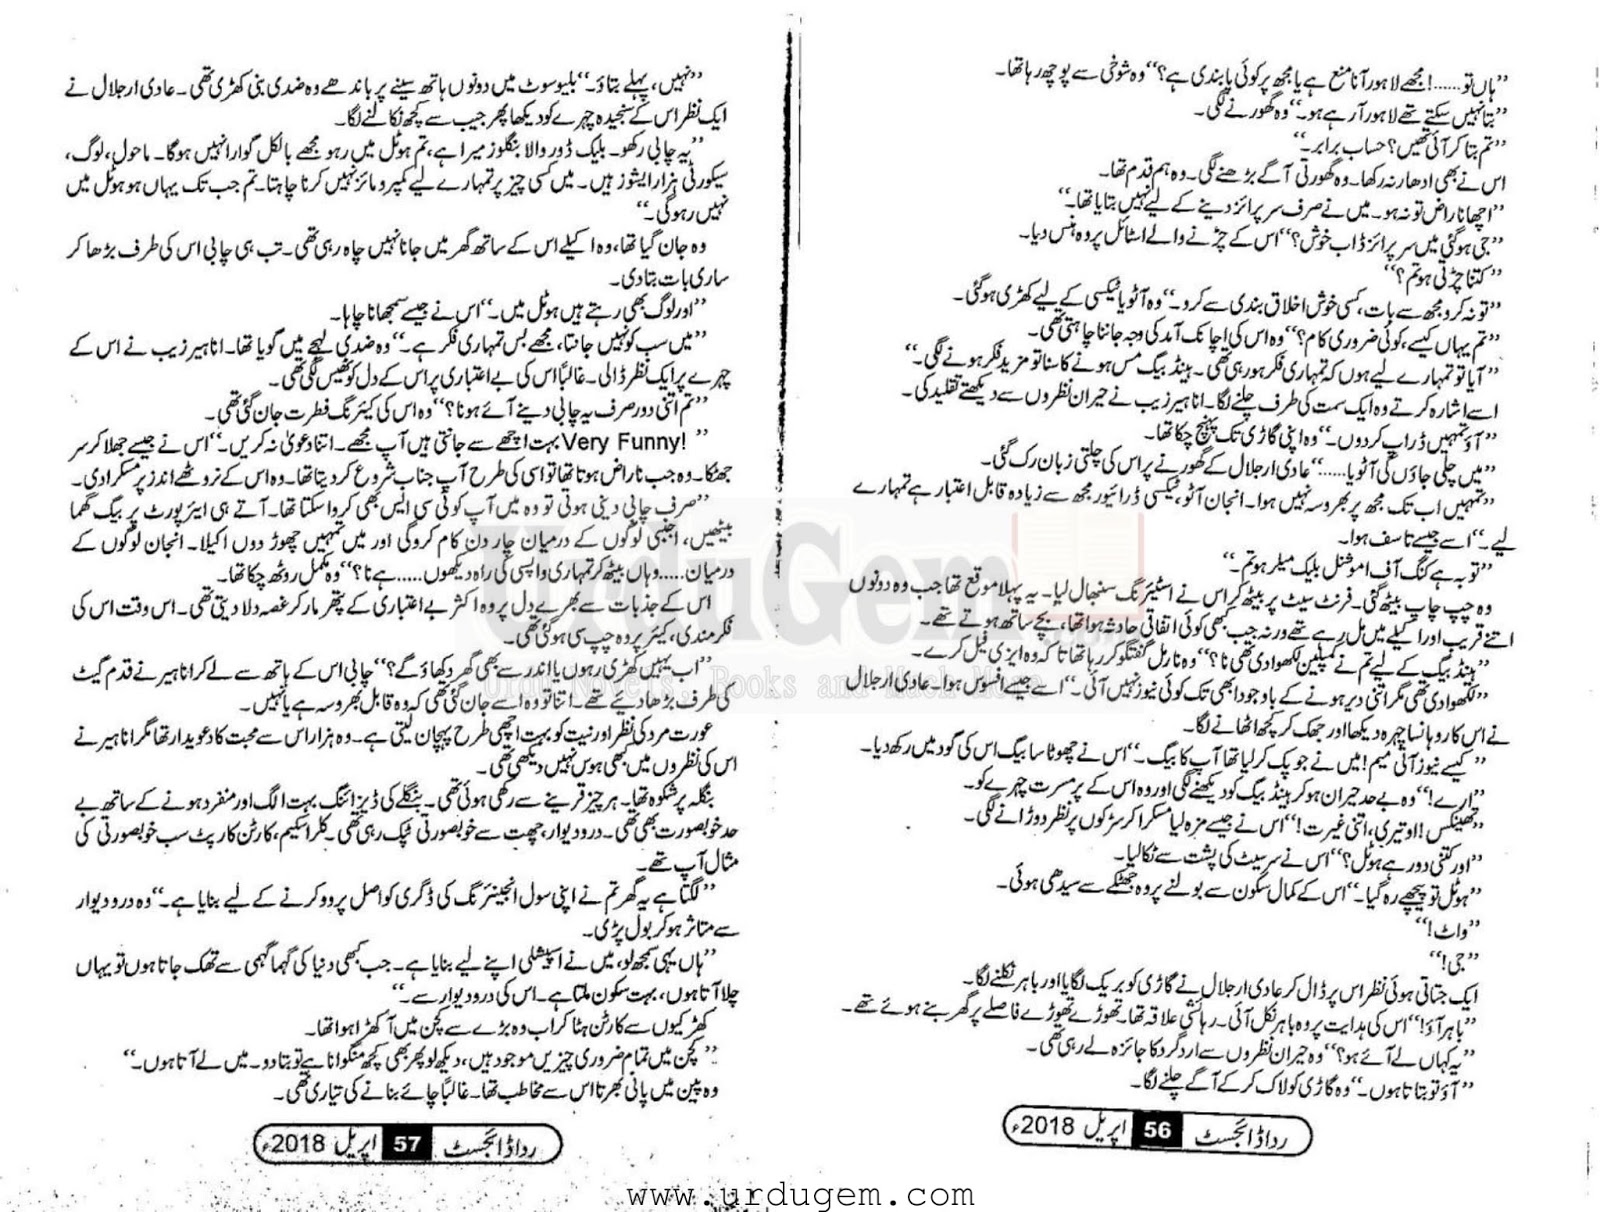 ”ہاں تو......! مجھے لاہور آنا منع ہے یا مجھ پر کوئی پابندی ہے؟“ وہ شوخی سے پوچھ رہا تھا۔
”بتا نہیں سکتے تھے لاہور آ رہے ہو۔“ وہ گھورنے لگی۔
”تم بتا کر آئی تھیں؟ حساب برابر۔“
اس نے بھی ادھار نہ رکھا۔ وہ گھورتی آگے بڑھنے لگی۔ وہ ہم قدم تھا۔
”اچھا ناراض تو نہ ہو۔ میں نے صرف سرپرائز دینے کے لیے نہیں بتایا تھا۔“
”جی ہو گئی میں سرپرائزڈ اب خوش؟“ اس کے چڑنے والے اسٹائل پر وہ ہنس دیا۔
”کتنا چڑتی ہو تم؟“
”تو نہ کرو مجھ سے بات، کسی خوش اخلاق بندی سے کرو۔“ وہ آٹو یا ٹیکسی کے لیے کھڑی ہو گئی
”تم یہاں کیسے، کوئی ضروری کام؟“ وہ اس کی اچانک آمد کی وجہ جاننا چاہتی تھی۔
”آیا تو تمہارے لیے ہوں کہ تمہاری فکر ہو رہی تھی۔ ہینڈ بیگ مس ہونے کا سنا تو مزید فکر ہونے لگی۔“
اسے اشارہ کرتے وہ ایک سمت کی طرف چلنے لگا۔ اناہیر زیب نے حیران نظروں سے دیکھتے تقلید کی۔
”آؤ تمہیں ڈراپ کر دوں۔“ وہ اپنی گاڑی تک پہنچ چکا تھا۔
”میں چلی جاؤں گی آٹو یا......“ عادی ارجلال کے گھورنے پر اس کی چلتی زبان رک گئی۔
”تمہیں اب تک مجھ پر بھروسہ نہیں ہوا۔ انجان آٹو، ٹیکسی ڈرائیور مجھ سے زیادہ قابل اعتبار ہے تمہارے
لیے۔“ اسے جیسے تاسف ہوا۔
”توبہ ہے کنگ آف اموشنل بلیک میلر ہو تم۔“
وہ چپ چاپ بیٹھ گئی۔ فرنٹ سیٹ پر بیٹھ کر اس نے اسٹیئرنگ سنبھال لیا۔ یہ پہلا موقع تھا جب وہ دونوں
اتنے قریب اور اکیلے میں مل رہے تھے ورنہ جب بھی کوئی اتفاقی حادثہ ہوا تھا، بچے ساتھ ہوتے تھے۔
”ہینڈ بیگ کے لیے تم نے کمپلین لکھوا دی تھی نا؟“ وہ نارمل گفتگو کر رہا تھا تاکہ وہ ایزی فیل کرے۔
”لکھوا دی تھی مگر اتنی دیر ہونے کے باوجود ابھی تک کوئی نیوز نہیں آئی۔“ اسے جیسے افسوس ہوا۔ عادی ارجلال
نے اس کا روہانسا چہرہ دیکھا اور جھک کر کچھ اٹھانے لگا۔
”کیسے نیوز آتی میم! میں نے جو پک کر لیا تھا آپ کا بیگ۔“ اس نے چھوٹا سا بیگ اس کی گود میں رکھ دیا۔
”ارے!“ وہ بے حد حیران ہو کر ہینڈ بیگ کو دیکھنے لگی اور وہ اس کے پر مسرت چہرے کو۔
”تھینکس! او تیری، اتنی غیرت!“ اس نے جیسے مزہ لیا مسکرا کر سڑکوں پر نظر دوڑانے لگی۔
”اور کتنی دور ہے ہوٹل؟“ اس نے سر سیٹ کی پشت سے ٹکا لیا۔
”ہوٹل تو پیچھے رہ گیا۔“ اس کے کمال سکون سے بولنے پر وہ جھٹکے سے سیدھی ہوئی۔
”واٹ!“
”جی!“
ایک جتاتی ہوئی نظر اس پر ڈال کر عادی ارجلال نے گاڑی کو بریک لگایا اور باہر نکلنے لگا۔
”باہر آؤ!“ اس کی ہدایت پر وہ باہر نکل آئی۔ رہائشی علاقہ تھا۔ تھوڑے تھوڑے فاصلے پر گھر بنے ہوئے تھے۔
”یہ کہاں لے آئے ہو؟“ وہ حیران نظروں سے ارد گرد کا جائزہ لے رہی تھی۔
”آؤ تو بتاتا ہوں۔“ وہ گاڑی کو لاک کر کے آگے چلنے لگا۔
رداڈائجسٹ 56 اپریل 2018ء
”نہیں، پہلے بتاؤ۔“ بلیو سوٹ میں دونوں ہاتھ سینے پر باندھے وہ ضدی بنی کھڑی تھی۔ عادی ارجلال نے
ایک نظر اس کے سنجیدہ چہرے کو دیکھا پھر جیب سے کچھ نکالنے لگا۔
”یہ چابی رکھو۔ بلیک ڈور والا بنگلوز میرا ہے، تم ہوٹل میں رہو مجھے بالکل گوارا نہیں ہوگا۔ ماحول، لوگ،
سیکورٹی ہزار ایشوز ہیں۔ میں کسی چیز پر تمہارے لیے کمپرومائز نہیں کرنا چاہتا۔ تم جب تک یہاں ہو ہوٹل میں
نہیں رہو گی۔“
وہ جان گیا تھا، وہ اکیلے اس کے ساتھ گھر میں جانا نہیں چاہ رہی تھی۔ تب ہی چابی اس کی طرف بڑھا کر
ساری بات بتا دی۔
”اور لوگ بھی رہتے ہیں ہوٹل میں۔“ اس نے جیسے سمجھانا چاہا۔
”میں سب کو نہیں جانتا، مجھے بس تمہاری فکر ہے۔“ وہ ضدی لہجے میں گویا تھا۔ اناہیر زیب نے اس کے
چہرے پر ایک نظر ڈالی۔ غالباً اس کی بے اعتباری پر اس کے دل کو ٹھیس لگی تھی۔
”تم اتنی دور صرف یہ چابی دینے آئے ہو نا؟“ وہ اس کی کیئرنگ فطرت جان گئی تھی۔
”Very Funny! بہت اچھے سے جانتی ہیں آپ مجھے۔ اتنا دعویٰ نہ کریں۔“ اس نے جیسے جھلا کر سر
جھٹکا۔ وہ جب ناراض ہوتا تھا تو اسی کی طرح آپ جناب شروع کر دیتا تھا۔ وہ اس کے نروٹھے انداز پر مسکرا دی۔
”صرف چابی دینی ہوتی تو وہ میں آپ کو ٹی سی ایس بھی کروا سکتا تھا۔ آتے ہی ایئرپورٹ پر بیگ گھما
بیٹھیں، اجنبی لوگوں کے درمیان چار دن کام کرو گی اور میں تمہیں چھوڑ دوں اکیلا۔ انجان لوگوں کے
درمیان...... وہاں بیٹھ کر تمہاری واپسی کی راہ دیکھوں...... ہے نا؟“ وہ مکمل روٹھ چکا تھا۔
اس کے جذبات سے بھرے دل پر وہ اکثر بے اعتباری کے پتھر مار کر غصہ دلا دیتی تھی۔ اس وقت اس کی
فکر مندی، کیئر پر وہ چپ سی ہو گئی تھی۔
”اب یہیں کھڑی رہوں یا اندر سے بھی گھر دکھاؤ گے؟“ چابی اس کے ہاتھ سے لے کر اناہیر نے قدم گیٹ
کی طرف بڑھا دیئے تھے۔ اتنا تو وہ اسے جان گئی تھی کہ وہ قابل بھروسہ ہے یا نہیں۔
عورت مرد کی نظر اور نیت کو بہت اچھی طرح پہچان لیتی ہے۔ وہ ہزار اس سے محبت کا دعویدار تھا مگر اناہیر نے
اس کی نظروں میں کبھی ہوس نہیں دیکھی تھی۔
بنگلہ پر شکوہ تھا۔ ہر چیز قرینے سے رکھی ہوئی تھی۔ بنگلے کی ڈیزائننگ بہت الگ اور منفرد ہونے کے ساتھ بے
حد خوبصورت بھی تھی۔ در و دیوار، چھت سے خوبصورتی ٹپک رہی تھی۔ کلر اسکیم، کارٹن کارپٹ سب خوبصورتی کی
مثال آپ تھے۔
”لگتا ہے یہ گھر تم نے اپنی سول انجینئرنگ کی ڈگری کو اصل پروو کرنے کے لیے بنایا ہے۔“ وہ در و دیوار
سے متاثر ہو کر بول پڑی۔
”ہاں یہی سمجھ لو، میں نے اسپیشلی اپنے لیے بنایا ہے۔ جب کبھی دنیا کی گہما گہمی سے تھک جاتا ہوں تو یہاں
چلا آتا ہوں، بہت سکون ملتا ہے۔ اس کی در و دیوار سے۔“
کھڑکیوں سے کارٹن ہٹا کر اب وہ بڑے سے کچن میں آ کھڑا ہوا تھا۔
”کچن میں تمام ضروری چیزیں موجود ہیں، دیکھ لو پھر بھی کچھ منگوانا ہے تو بتا دو۔ میں لے آتا ہوں۔“
وہ پین میں پانی بھرتا اس سے مخاطب تھا۔ غالباً چائے بنانے کی تیاری تھی۔
رداڈائجسٹ 57 اپریل 2018ء
UrduGem
Urdu Novels, Books and Much More
www.urdugem.com